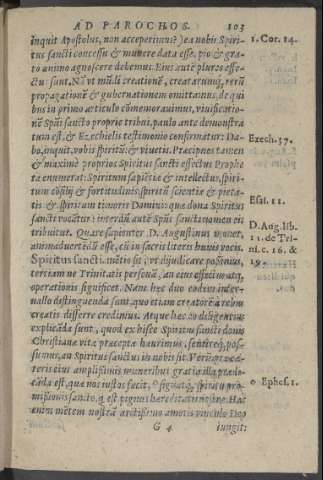 AD PAROCHOS. 103
inquit Apostolus, non acceperimus? Ea nobis Spiri-
tus sancti concessu & munere data esse, pio & gra-
to animo agnoscere debemus. Eius autē plures effe-
ctus sunt. Nā vt mūdi creationē, creatarumq́; rerū
propagationē & gubernationem omittamus, de qui
bus in primo articulo cōmemorauimus, viuificatio-
nē Spūs sancti proprie tribui, paulo ante demonstra
tum est, & Ezechielis testimonio confirmatur: Da-
bo, inquit, vobis spiritū, & viuetis. Præcipuos tamen
& maximè proprios Spiritus sancti effectus Prophe
ta enumerat: Spiritum sapiētiæ & intellectus, spiri-
tum cōsilij & fortitudinis, spiritū scientiæ & pieta-
tis & spiritum timoris Domini: quæ dona Spiritus
sancti vocātur: interdū autē Spūs sancti nomen eis
tribuitur. Quare sapienter D. Augustinus monet,
animaduertēdū esse, cū in sacris literis huius vocis,
Spiritus sancti, mētio sit, vt dijudicare possimus,
tertiam ne Trinitatis personā, an eius effectū atq;
operationis significet. Nam hæc duo eodem inter-
uallo distinguenda sunt, quo etiam creatorē à rebus
creatis differre credimus. Atque hæc eo diligentius
explicāda sunt, quod ex hisce Spiritus sancti donis
Christianæ vitæ præcepta haurimus, sentireq́; pos-
sumus, an Spiritus sanctus in nobis sit. Verùm præ cæ-
teris eius amplissimis muneribus gratia illa prædi-
cāda est, quæ nos iustos facit, o signatq́; spiritu pro-
missionis sancto, q̄ est pignus hereditatis nostræ. Hæc
enim mētem nostrā arctissimo amoris vinculo Deo
G 4 iungit:
1. Cor. 14.
Ezech. 37.
Esai. 11.
D. Aug. lib.
15. de Tri-
ni. c. 16. &
19.
o Ephes. 1.